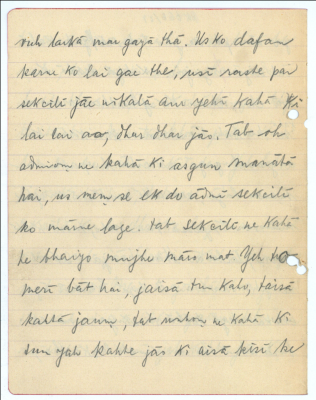 vuh larkā mar gayā thā. Usko dafan
karne ko lai gae the, usī raste par
sekcilī jāe nikalā aur yehī kahā ki
lai lai ao, dhar dhar jāo. Tab oh
admiom̩ ne kahā ki asgun manātā
hai, us mem̩ se ek do ādmī sekcilī
ko mārne lage. tat sekcilī ne kahā
he bhaiyo mujhe māro mat. Yeh to
merī bāt hai, jaisā tum kaho, taisā
kahtā jaum̩, tat unhom̩ ne kahā ki
tum yah kahte jāo ki aisā kisī ke